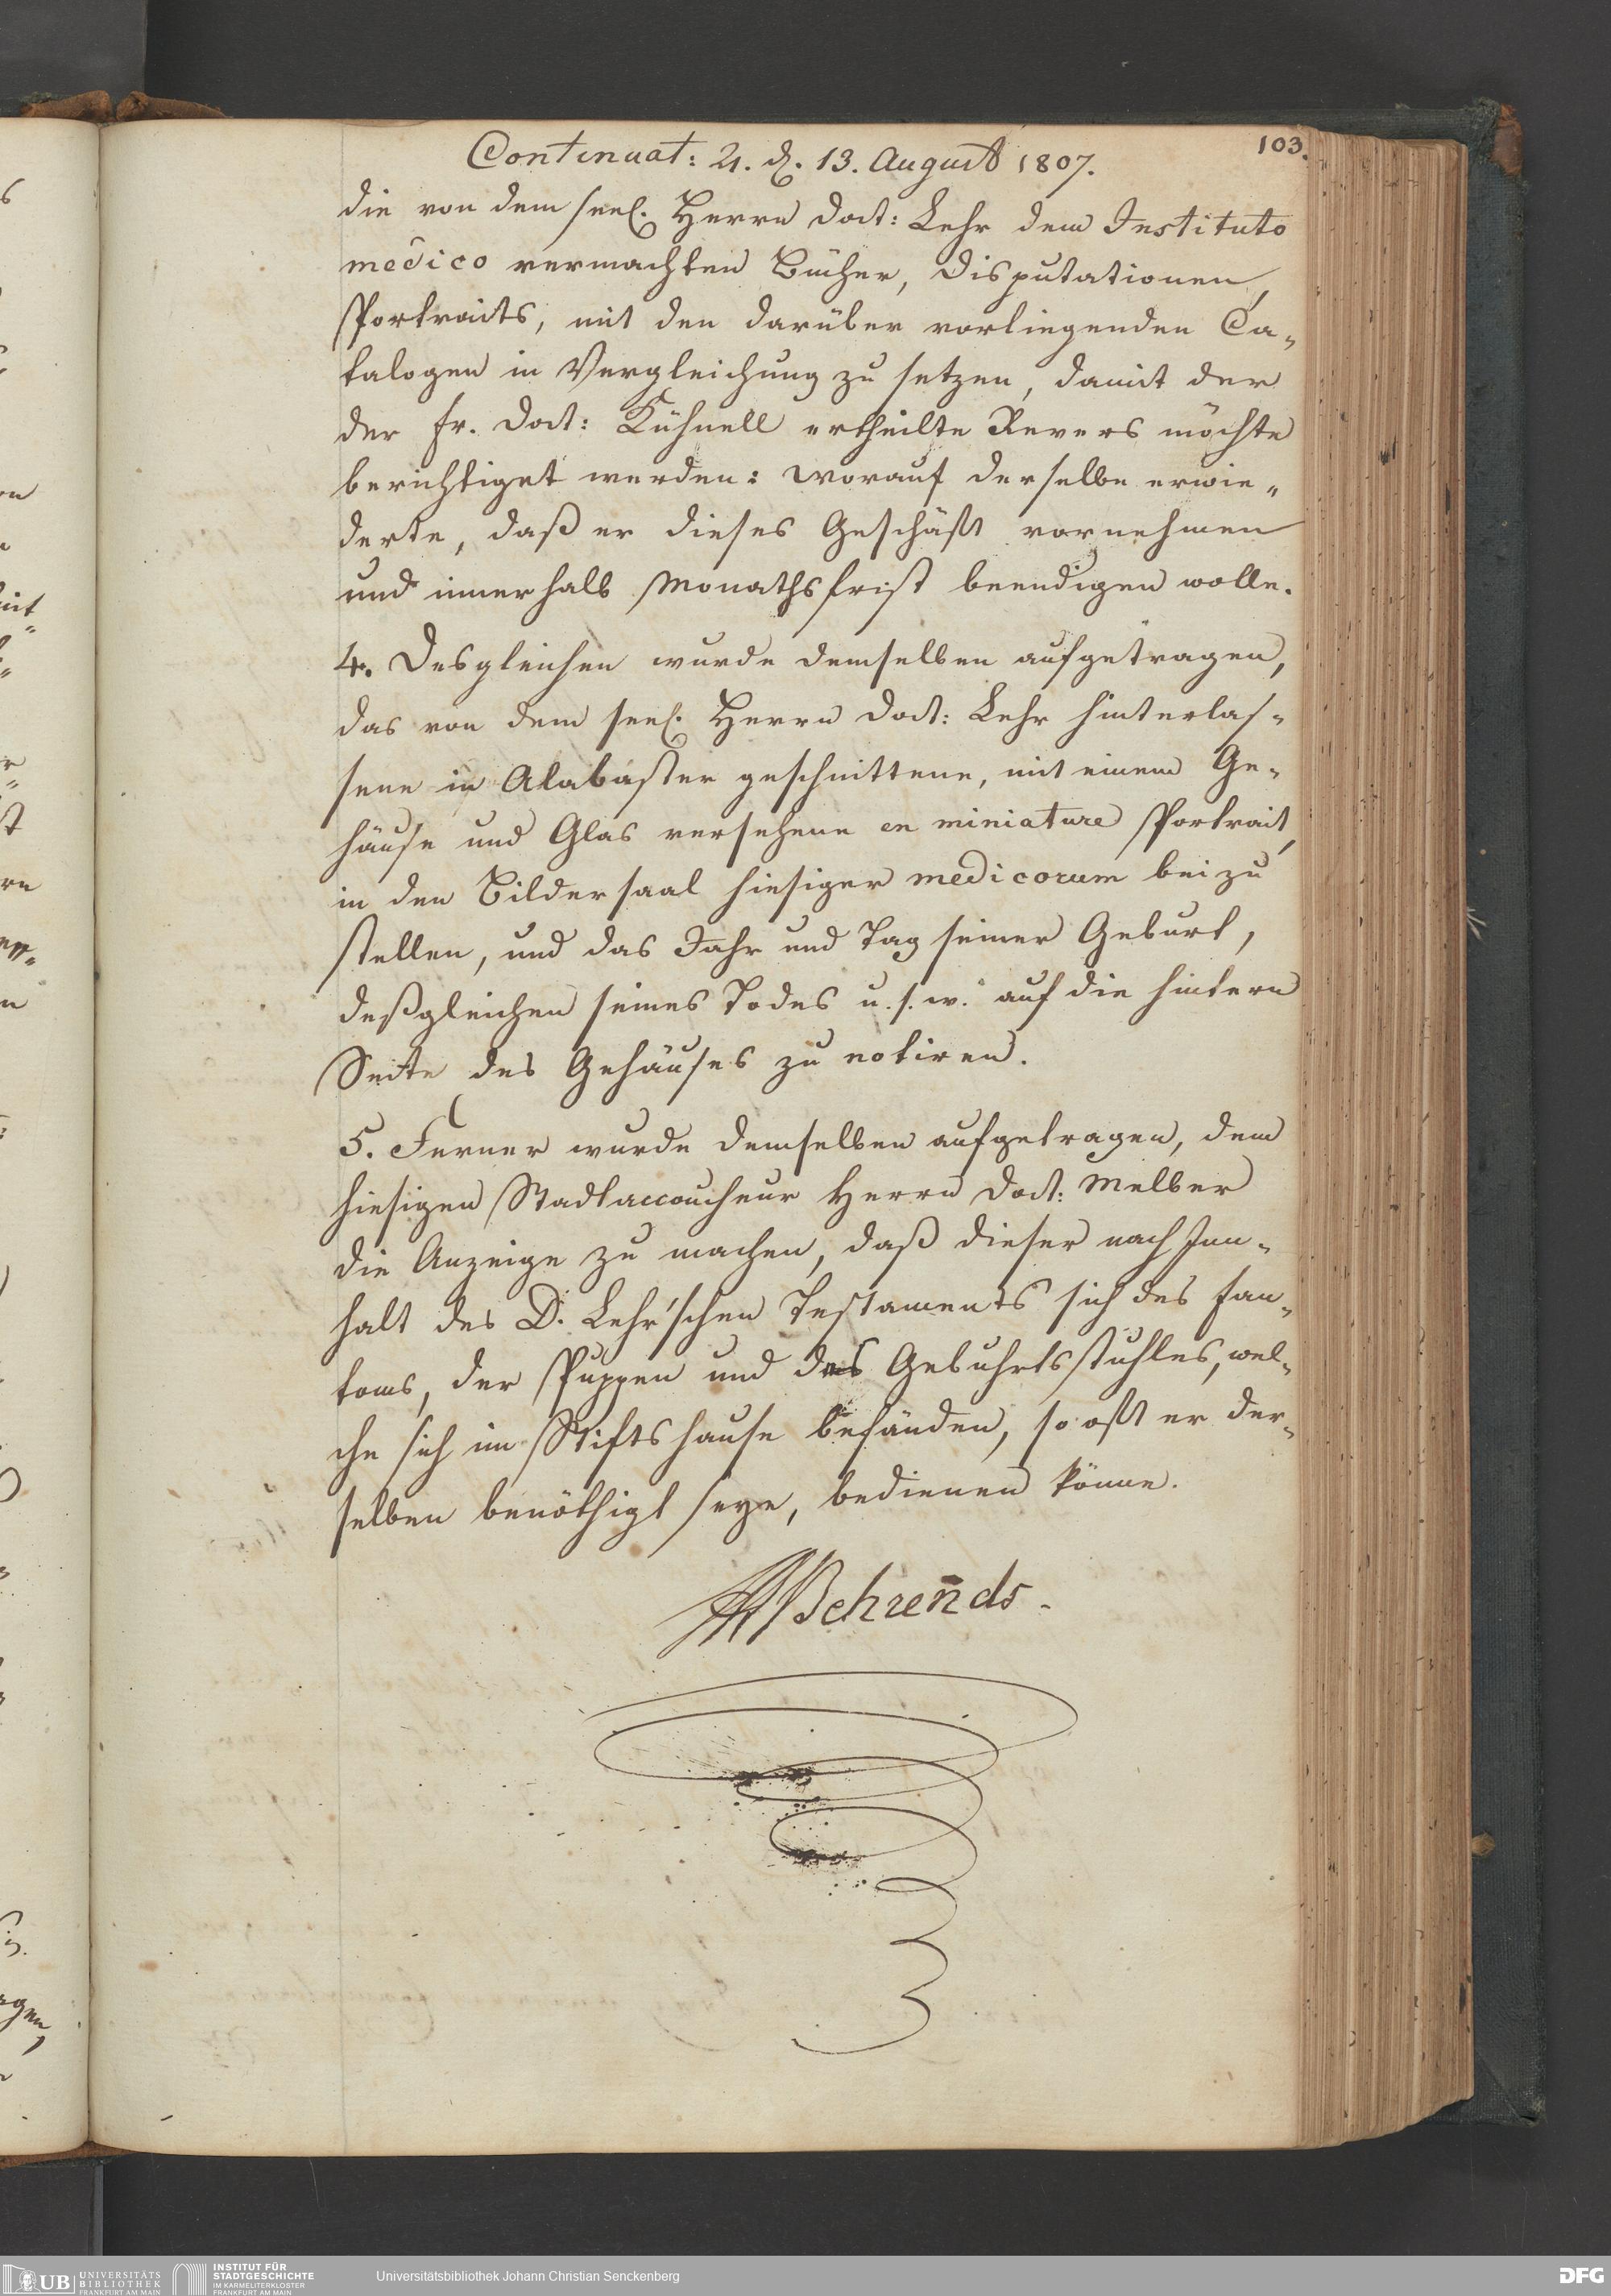 103.
Continuat: 4. d. 13. August 1807.
die von dem seel. Herrn Doct: Lehr dem Instituto
medico vermachten Bücher, Disputationen,
Portraits, mit den darüber vorliegenden Ca-
talogen in Vergleichung zu setzen, damit der
der Fr. Doct: Kühnell ertheilte Revers möchte
berichtiget werden: worauf derselbe erwie-
derte, daß er dieses Geschäft vornehmen
und innerhalb Monathsfrist beendigen wolle.
4. Desgleichen wurde demselben aufgetragen,
das von dem seel. Herrn Doct: Lehr hinterlas-
sene in Alabaster geschnittene, mit einem Ge-
häuse und Glas versehene en miniature Portrait,
in den Bildersaal hiesiger medicorum beizu
stellen, und das Jahr und Tag seiner Geburt,
deßgleichen seines Todes u. s. w. auf die hintere
Seite des Gehäuses zu notiren.
5. Ferner wurde demselben aufgetragen, dem
hiesigen Stadtaccoucheur Herrn Doct: Melber
die Anzeige zu machen, daß dieser nach Inn-
halt des D. Lehr'schen Testaments sich des Fan-
toms, der Puppen und des Gebuhrtsstuhles, wel-
che sich im Stiftshause befänden, so oft er der-
selben benöthigt seye, bedienen könne.
Behrends.
UB UNIVERSITÄTS
BIBLIOTHEK
FRANKFURT AM MAIN
INSTITUT FÜR
STADTGESCHICHTE
IM KARMELITERKLOSTER
FRANKFURT AM MAIN
Universitätsbibliothek Johann Christian Senckenberg
DFG